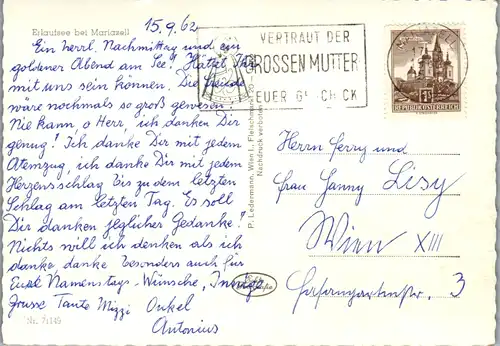 Erlaufsee bei Mariazell
15.9.62
Ein herrl. Nachmittag und ein
goldener Abend am See! Hättet Ihr
mit uns sein können. Die Freude
wäre nochmals so groß gewesen!
Nie kann, o Herr, ich danken Dir
genug! Ich danke Dir mit jedem
Atemzug, ich danke Dir mit jedem
Herzensschlag bis zu dem letzten
Schlag am letzten Tag. Es soll
Dir danken jeglicher Gedanke!
Nichts will ich denken als ich
danke, danke besonders auch für
Eure Namenstags-Wünsche, Innige
Grüsse Tante Mizzi Onkel
Antonius
Nr. 71145
P. Ledermann, Wien I., Fleischmarkt 20
Nachdruck verboten
VERTRAUT DER
GROSSEN MUTTER
EUER GESCHICK
REPUBLIK ÖSTERREICH
Herrn Ferry und
Frau Hanny Lisy
Wien XIII
Fasangartenstr. 3